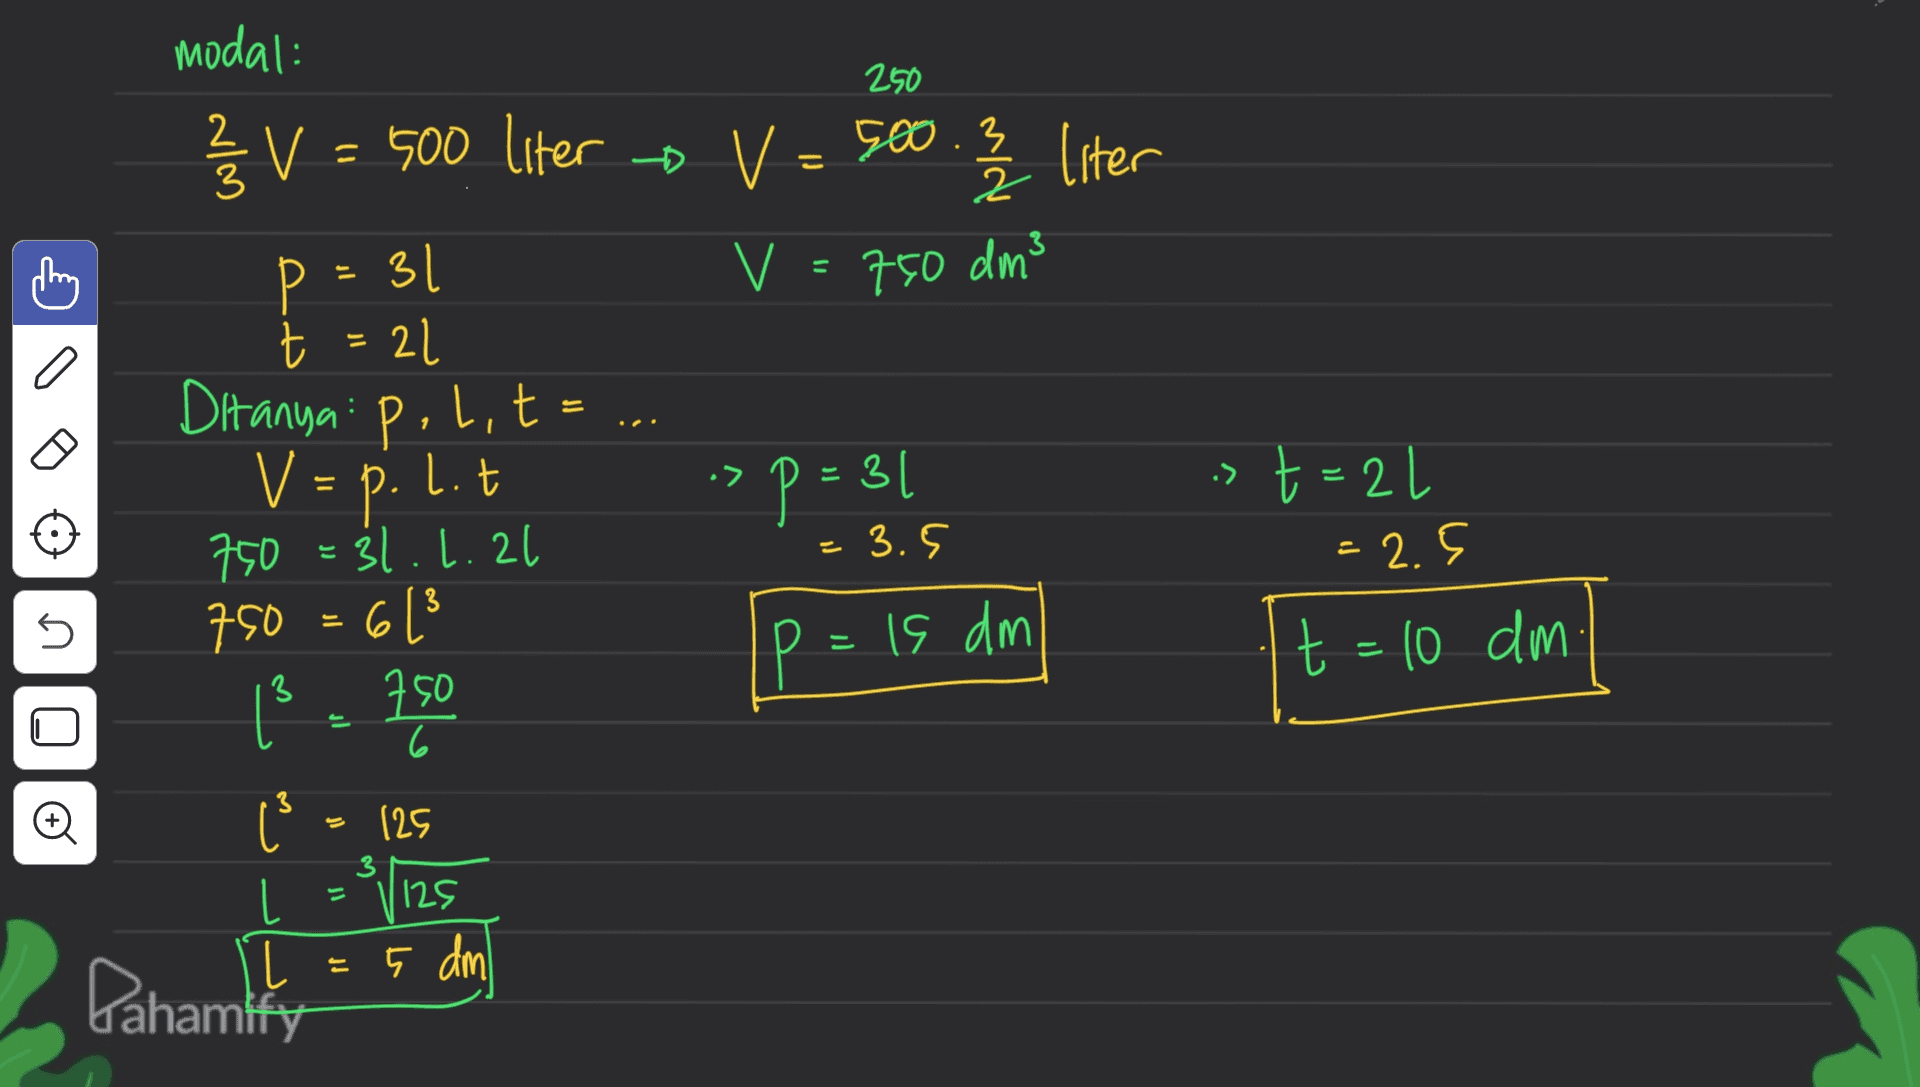 modal:
2/3 V = 500 liter → V = 500 . 3/2 liter
250
p = 3l
V = 750 dm³
t = 2l
Ditanya: p, l, t = ...
V = p. l. t
750 = 3l . l. 2l
750 = 6l³
l³ = 750/6
l³ = 125
l = ³√125
l = 5 dm
.> p = 3l
= 3.5
p = 15 dm
.> t = 2l
= 2.5
t = 10 dm
Pahamify